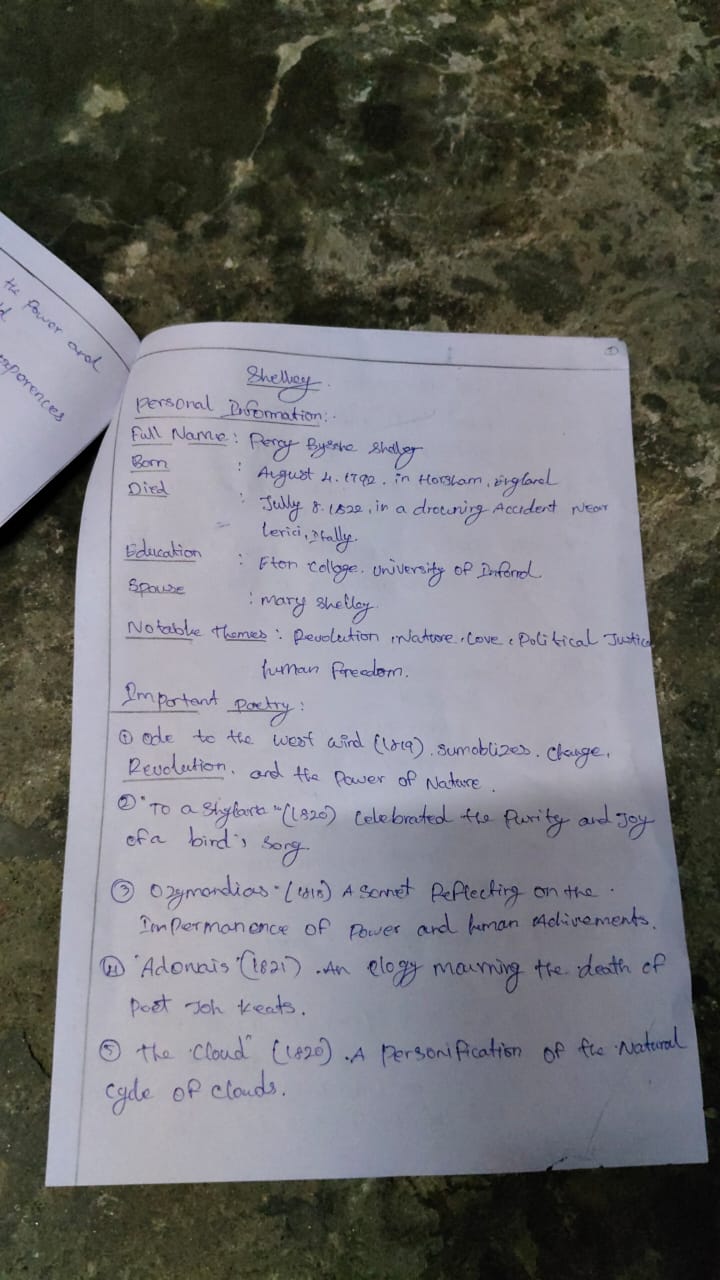 the Power and
Shelley.
Personal Information:-
Full Name : Percy Bysshe Shelley
Born : August 4. 1792. in Horsham, England
Died : Jully 8. 1822, in a drowning Accident Near
Lerici, Itally.
Education : Eton College. University of
Spouse : Mary Shelley.
Notable themes : Revolution, Nature, Love, Political Justice
human freedom.
Important Poetry :
① Ode to the West wind (1819). Sumoblizes. Change,
Revolution. and the Power of Nature.
② "To a Skylark" (1820) Celebrated the Purity and Joy
of a bird's song
③ Ozymandias" (1818) A Sonnet Reflecting on the.
Impermanence of Power and human Achivements.
④ 'Adonais' (1821) . An elogy mourning the death of
Poet Joh Keats.
⑤ The "Cloud" (1820) . A Personification of the Natural
Cycle of Clouds.